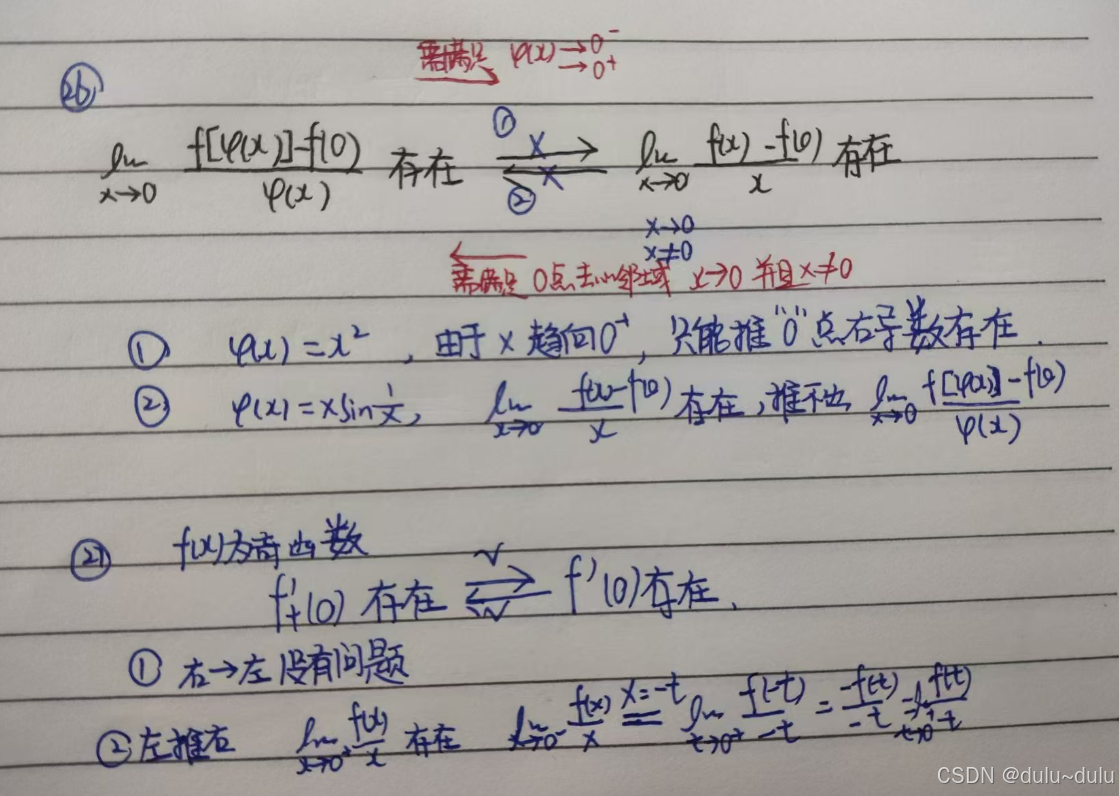 需满足 φ(x) →0⁻ →0⁺
㉖
lim x→0 f[φ(x)]-f(0) / φ(x) 存在 ① × ⇄ ② × lim x→0 f(x)-f(0) / x 存在
x→0
x≠0
需满足 0点去心邻域 x→0 并且x≠0
① φ(x)=x², 由于x趋向0⁺, 只能推“0”点右导数存在.
② φ(x)=xsin 1/x, lim x→0 f(x)-f(0) / x 存在, 推不出 lim x→0 f[φ(x)]-f(0) / φ(x)
f(x)为奇函数
f'₊(0) 存在 √ ⇄ √ f'(0)存在.
① 右→左没有问题
② 左推右 lim x→0⁺ f(x)/x 存在 lim x→0⁻ f(x)/x x=-t = lim t→0⁺ f(-t)/-t = -f(t)/-t = lim t→0⁺ f(t)/-t
CSDN @dulu~dulu